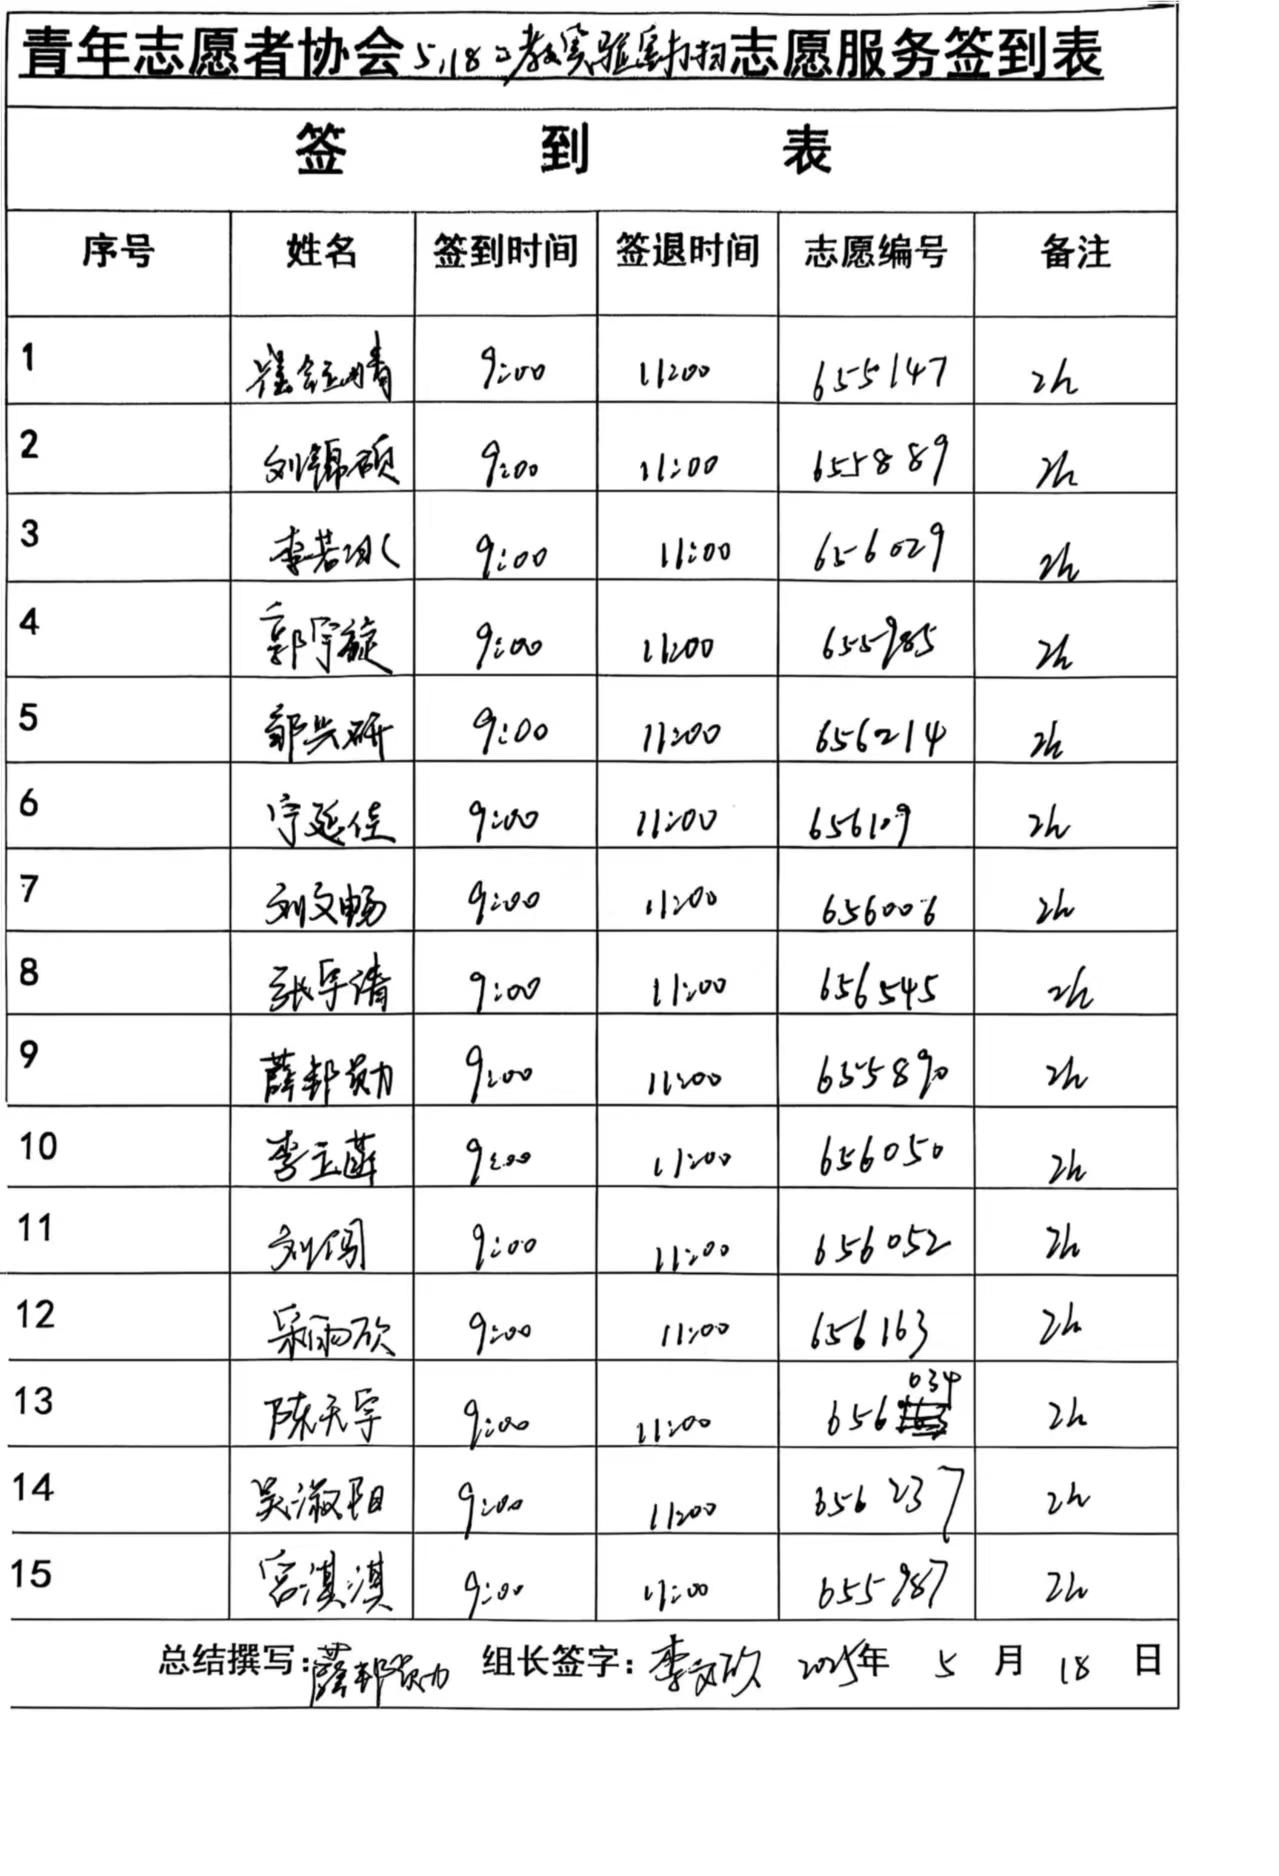 青年志愿者协会5.18二教实验室打扫志愿服务签到表
签 到 表
序号 姓名 签到时间 签退时间 志愿编号 备注
1 崔钰晴 9:00 11:00 655147 2h
2 刘锦硕 9:00 11:00 655889 2h
3 李若冰 9:00 11:00 656029 2h
4 郭宇旋 9:00 11:00 655985 2h
5 郭兴研 9:00 11:00 656214 2h
6 宁延佳 9:00 11:00 656109 2h
7 刘文畅 9:00 11:00 656006 2h
8 张宇清 9:00 11:00 656545 2h
9 薛邦勋 9:00 11:00 655890 2h
10 李立菲 9:00 11:00 656050 2h
11 刘闯 9:00 11:00 656052 2h
12 雨欣 9:00 11:00 656163 2h
13 陈天宇 9:00 11:00 656034 2h
14 吴淑阳 9:00 11:00 656237 2h
15 宫淇淇 9:00 11:00 655987 2h
总结撰写:薛邦勋 组长签字:李文欣 2025年 5 月 18 日